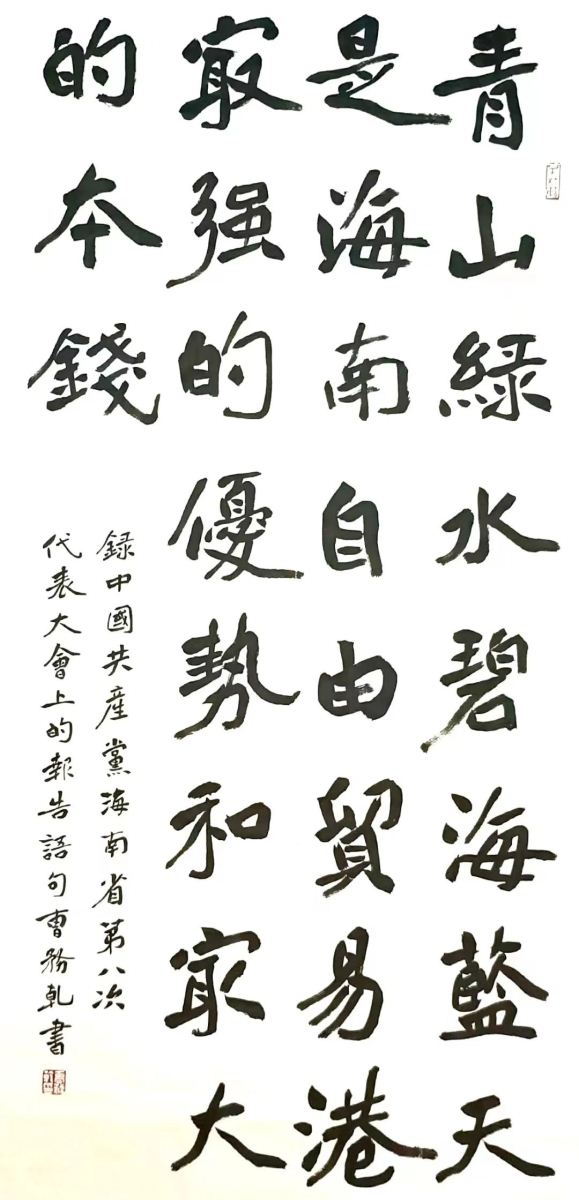 青山緑水碧海藍天
是海南自由貿易港
冣强的優勢和冣大
的本錢
録中國共產黨海南省第八次
代表大會上的報告語句曹務乾書